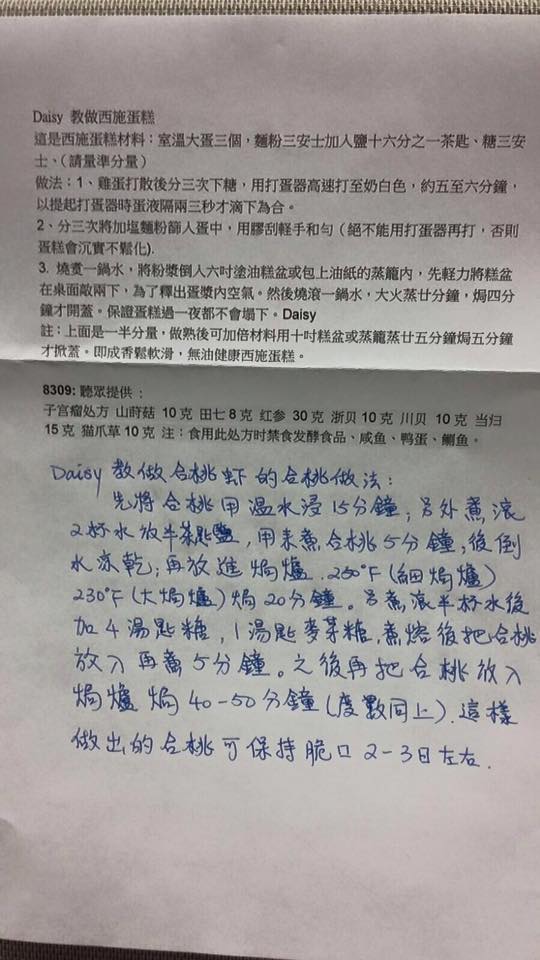 Daisy 教做西施蛋糕
這是西施蛋糕材料：室溫大蛋三個，麵粉三安士加入鹽十六分之一茶匙、糖三安
士、（請量準分量）
做法：1、雞蛋打散後分三次下糖，用打蛋器高速打至奶白色，約五至六分鐘，
以提起打蛋器時蛋液隔兩三秒才滴下為合。
2、分三次將加塩麵粉篩入蛋中，用膠刮輕手和勻（絕不能用打蛋器再打，否則
蛋糕會沉實不鬆化).
3. 燒煲一鍋水，將粉漿倒入六吋塗油糕盆或包上油紙的蒸籠內，先輕力將糕盆
在桌面敲兩下，為了釋出蛋漿內空氣。然後燒滾一鍋水，大火蒸廿分鐘，焗四分
鐘才開蓋。保證蛋糕過一夜都不會塌下。Daisy
註：上面是一半分量，做熟後可加倍材料用十吋糕盆或蒸籠蒸廿五分鐘焗五分鐘
才掀蓋。即成香鬆軟滑，無油健康西施蛋糕。
8309: 聽眾提供：
子宫瘤处方 山莳菇 10 克 田七 8 克 红参 30 克 浙贝 10 克 川贝 10 克 当归
15 克 猫爪草 10 克 注：食用此处方时禁食发酵食品、咸鱼、鸭蛋、鲗鱼。
Daisy 教做合桃虾的合桃做法：
先將合桃用溫水浸15分鐘；另外煮滾
2杯水放半茶匙鹽，用來煮合桃5分鐘，後倒
水凉乾；再放進焗爐.250°F(細焗爐)
230°F(大焗爐)焗20分鐘。另煮滾半杯水後
加4湯匙糖，1湯匙麥芽糖，煮熔後把合桃
放入再煮5分鐘。之後再把合桃放入
焗爐焗40-50分鐘(度數同上).這樣
做出的合桃可保持脆口2-3日左右.